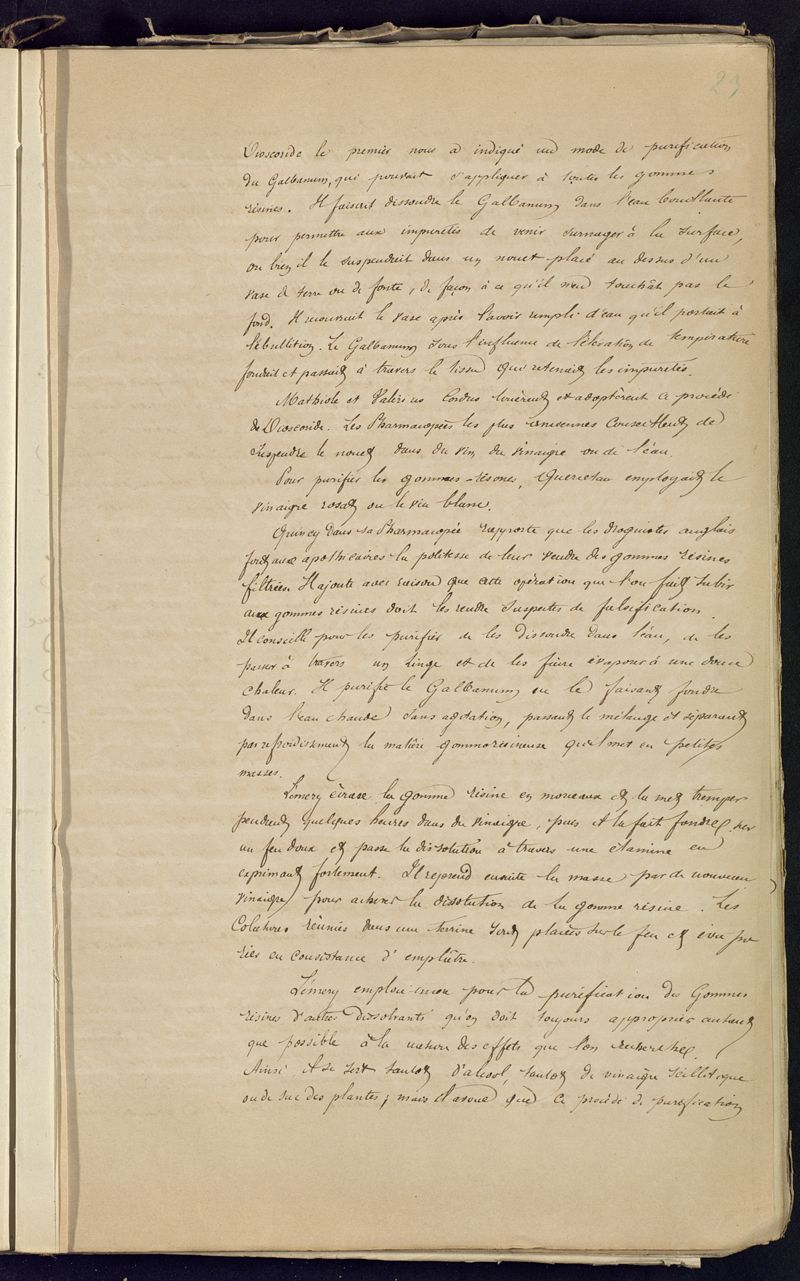 23
Dioscoride le premier nous a indiqué un mode de purification
du Galbanum, qui pouvait s'appliquer à toutes les gommes
résines. Il faisait dissoudre le Galbanum dans l'eau bouillante
pour permettre aux impuretés de venir surnager à la surface,
ou bien il le suspendait dans un nouet placé au dessus d'un
vase de terre ou de fonte, de façon à ce qu'il n'en touchât pas le
fond. Il recouvrait le vase après l'avoir rempli d'eau qu'il portait à
l'ébullition. Le Galbanum sous l'influence de l'élévation de température
fondait et passait à travers le tissu qui retenait les impuretés.
Mathiole et Valérius Cordus louèrent et adoptèrent ce procédé
de Dioscoride. Les Pharmacopées les plus anciennes conseillent de
suspendre le nouet dans du vin du vinaigre ou de l'eau.
Pour purifier les gommes-résines, Quercetan employait le
vinaigre rosat ou le vin blanc.
Quincy dans sa Pharmacopée rapporte que les droguistes anglais
font aux apothicaires la politesse de leur vendre des gommes résines
filtrées. Il ajoute avec raison que cette opération que l'on fait subir
aux gommes résines doit les rendre suspectes de falsification.
Il conseille pour les purifier de les dissoudre dans l'eau, de les
passer à travers un linge et de les faire évaporer à une douce
chaleur. Il purifie le Galbanum en le faisant fondre
dans l'eau chaude sans agitation, passant le mélange et séparant
par refroidissement la matière gommorésineuse qu'il met en petites
masses.
Lémery écrase la gomme résine en morceaux et la met tremper
pendant quelques heures dans du vinaigre, puis il la fait fondre sur
un feu doux et passe la dissolution à travers une étamine en
exprimant fortement. Il reprend ensuite la masse par de nouveau
vinaigre pour achever la dissolution de la gomme résine. Les
Colatures réunies dans une terrine sont placées sur le feu et évapo
rées en consistance d'emplâtre.
Lémery emploie encore pour la purification des Gommes
résines d'autres dissolvants qu'on doit toujours approprier autant
que possible à la nature des effets que l'on recherche.
Ainsi il se sert tantôt d'alcool, tantôt de vinaigre scillitique
ou de suc des plantes; mais il avoue que ce procédé de purification